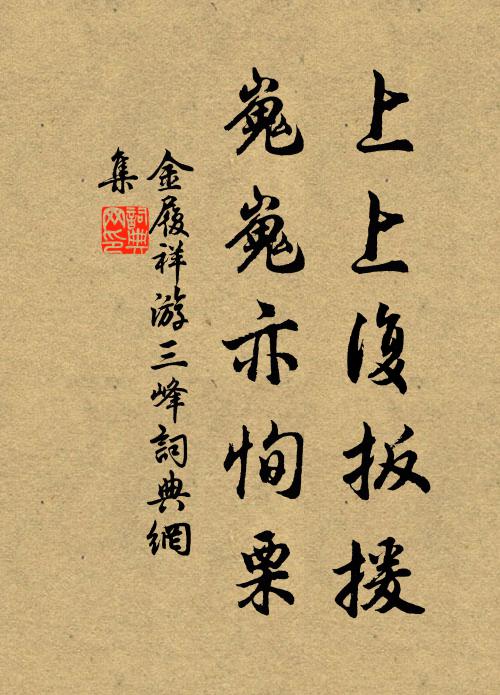 上上復扳援
嵬嵬亦恂栗
金履祥游三峰詞典網
集
詞典网印